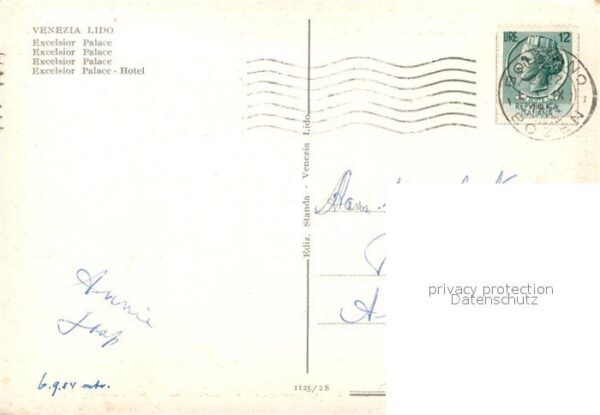 VENEZIA LIDO
Excelsior Palace
Excelsior Palace
Excelsior Palace
Excelsior Palace - Hotel
LIRE 12
REPVBBLICA
ITALIANA
Ediz. Standa - Venezia Lido
privacy protection
Datenschutz
Annie
Jaap
6.9.54
1125/28